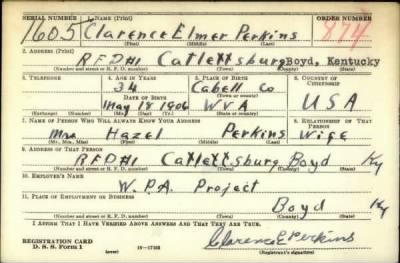 SERIAL NUMBER 1. NAME (Print) ORDER NUMBER
1605 Clarence Elmer Perkins 874
(First) (Middle) (Last)
2. ADDRESS (Print)
RFD#1 Catlettsburg Boyd, Kentucky
(Number and street or R. F. D. number) (Town) (County) (State)
3. TELEPHONE 4. AGE IN YEARS 5. PLACE OF BIRTH 6. COUNTRY OF CITIZENSHIP
34 Cabell Co
DATE OF BIRTH
May 18 1906 WVA USA
(Exchange) (Number) (Mo.) (Day) (Yr.) (Town or county) (State or country)
7. NAME OF PERSON WHO WILL ALWAYS KNOW YOUR ADDRESS 8. RELATIONSHIP OF THAT PERSON
Mrs Hazel Perkins Wife
(Mr., Mrs., Miss) (First) (Middle) (Last)
9. ADDRESS OF THAT PERSON
RFD#1 Catlettsburg Boyd Ky
(Number and street or R. F. D. number) (Town) (County) (State)
10. EMPLOYER'S NAME
W.P.A. Project
11. PLACE OF EMPLOYMENT OR BUSINESS
Boyd Ky
(Number and street or R. F. D. number) (Town) (County) (State)
I AFFIRM THAT I HAVE VERIFIED ABOVE ANSWERS AND THAT THEY ARE TRUE.
REGISTRATION CARD
D. S. S. Form 1 (over) 16—17105 Clarence E Perkins
(Registrant's signature)